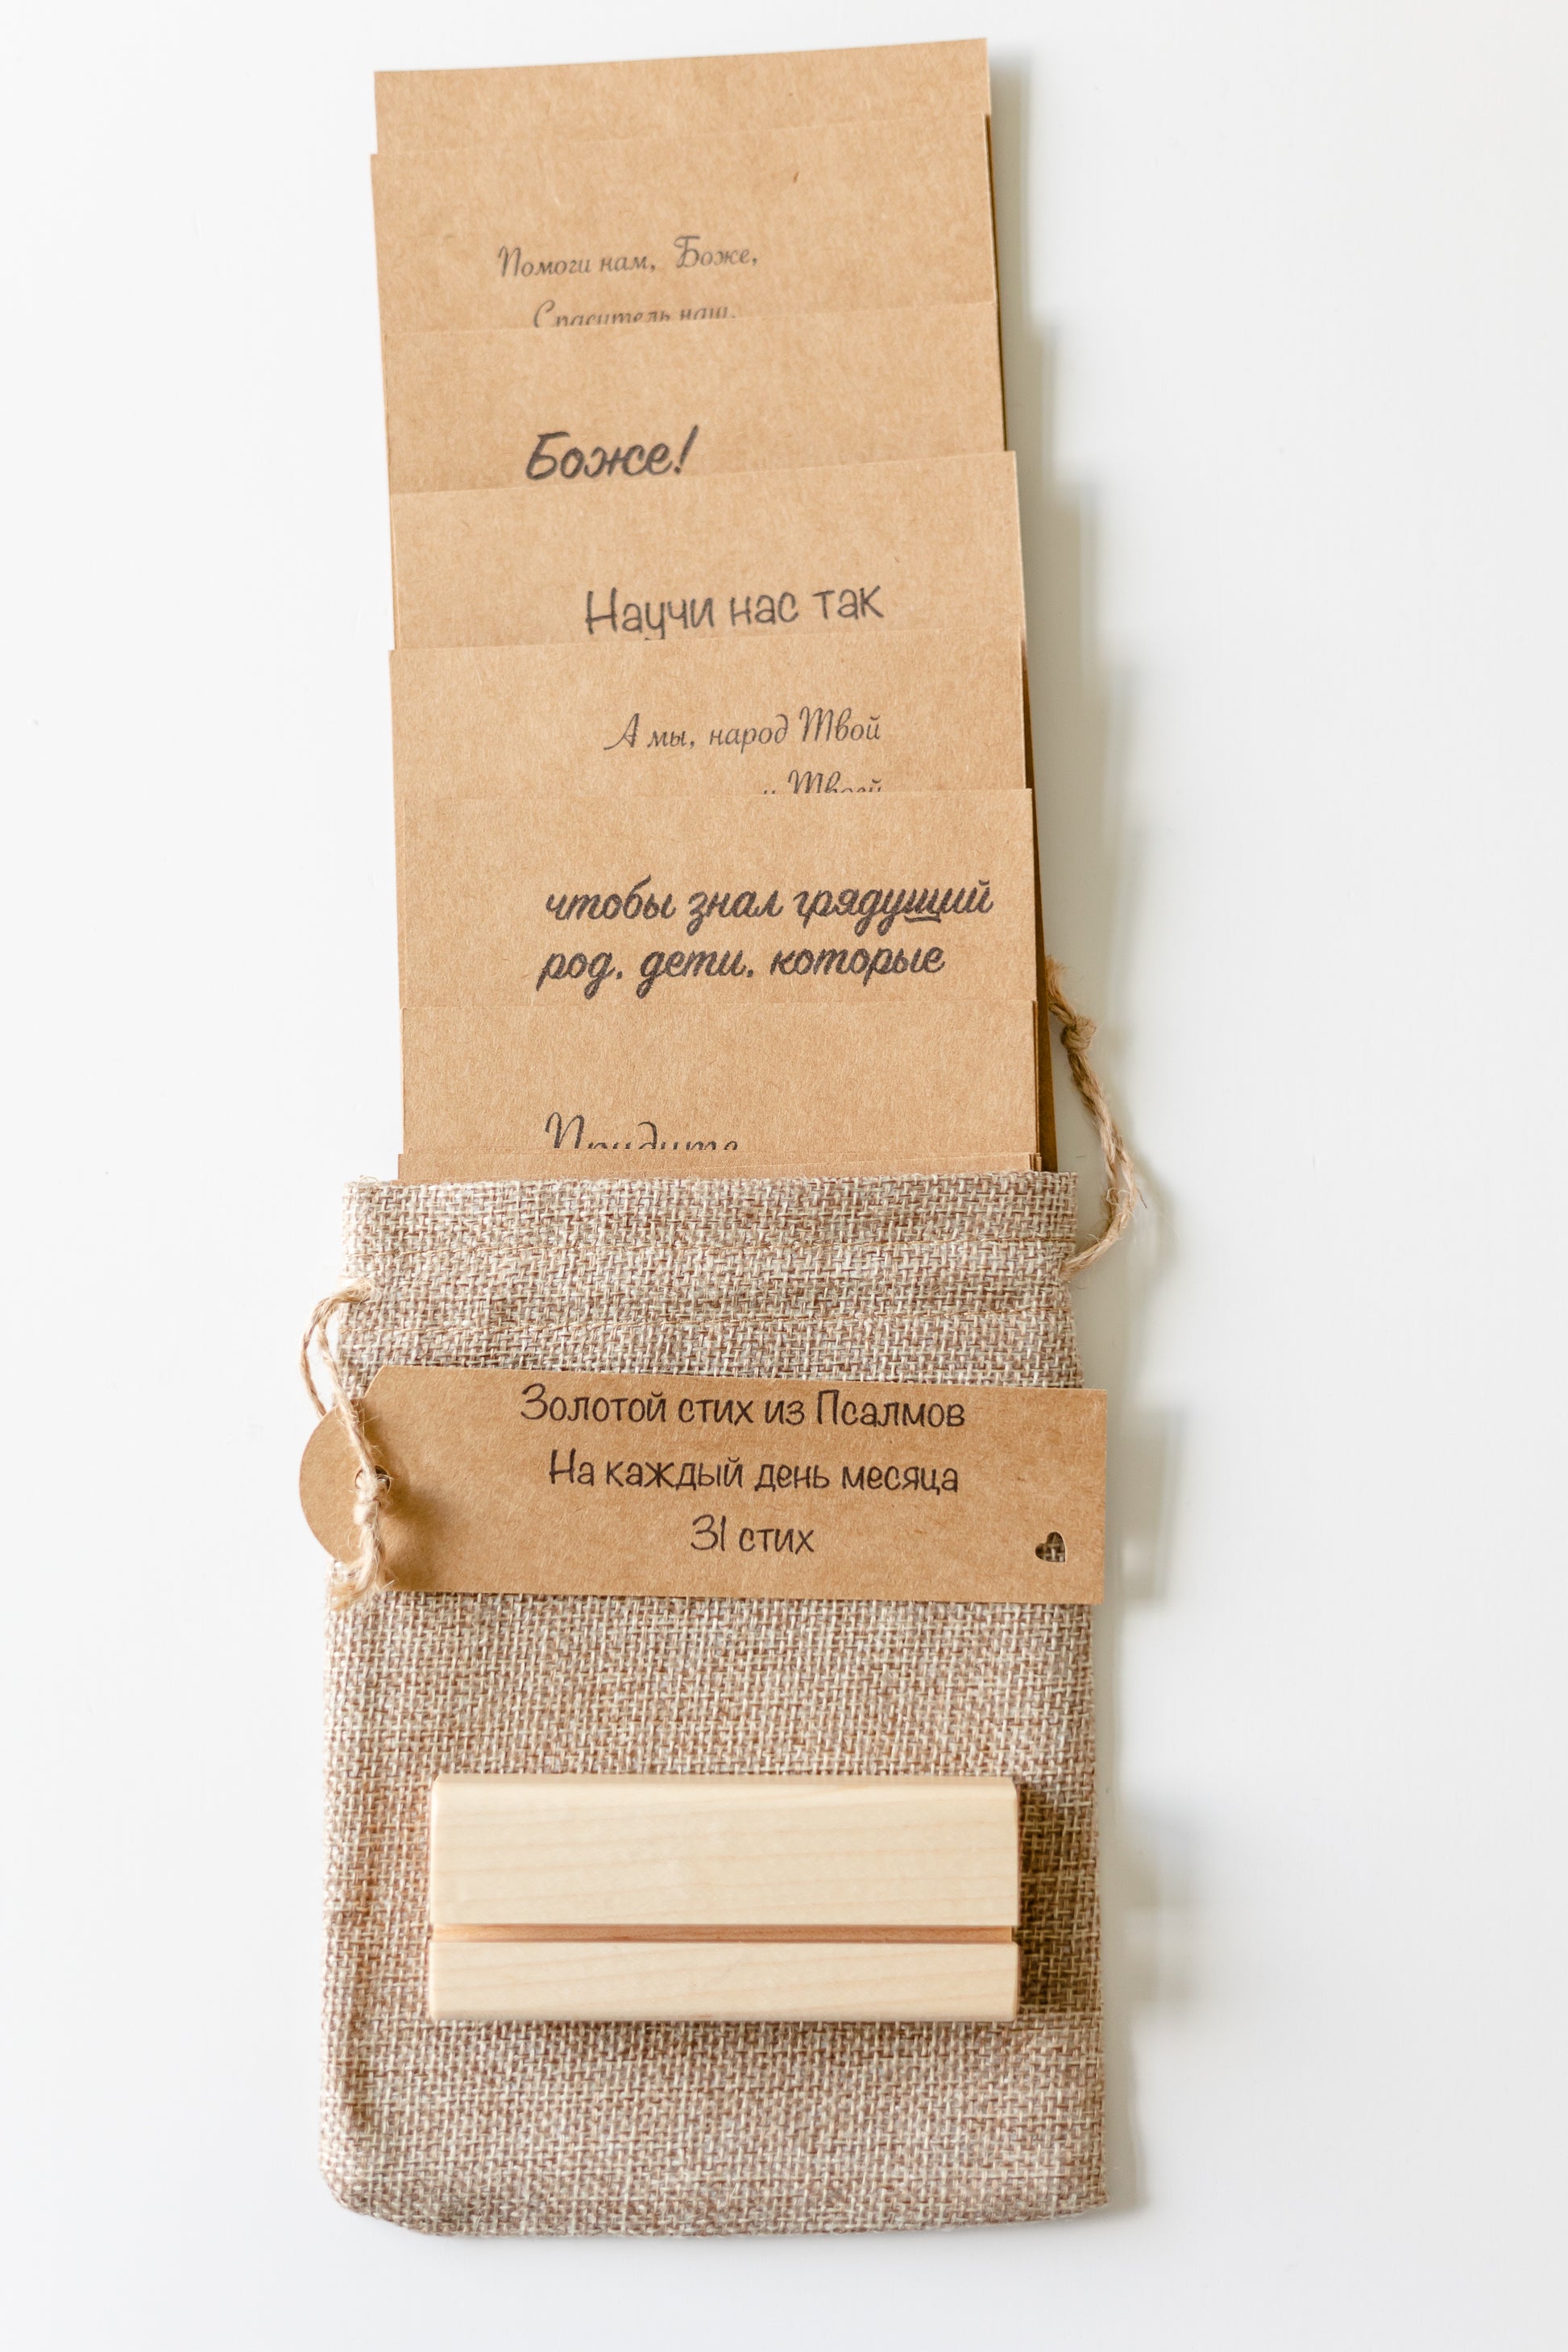 Помоги нам, Боже,
Спаситель наш,
Боже!
Научи нас так
А мы, народ Твой
и Твоей
чтобы знал грядущий
род, дети, которые
Придите
Золотой стих из Псалмов
На каждый день месяца
31 стих